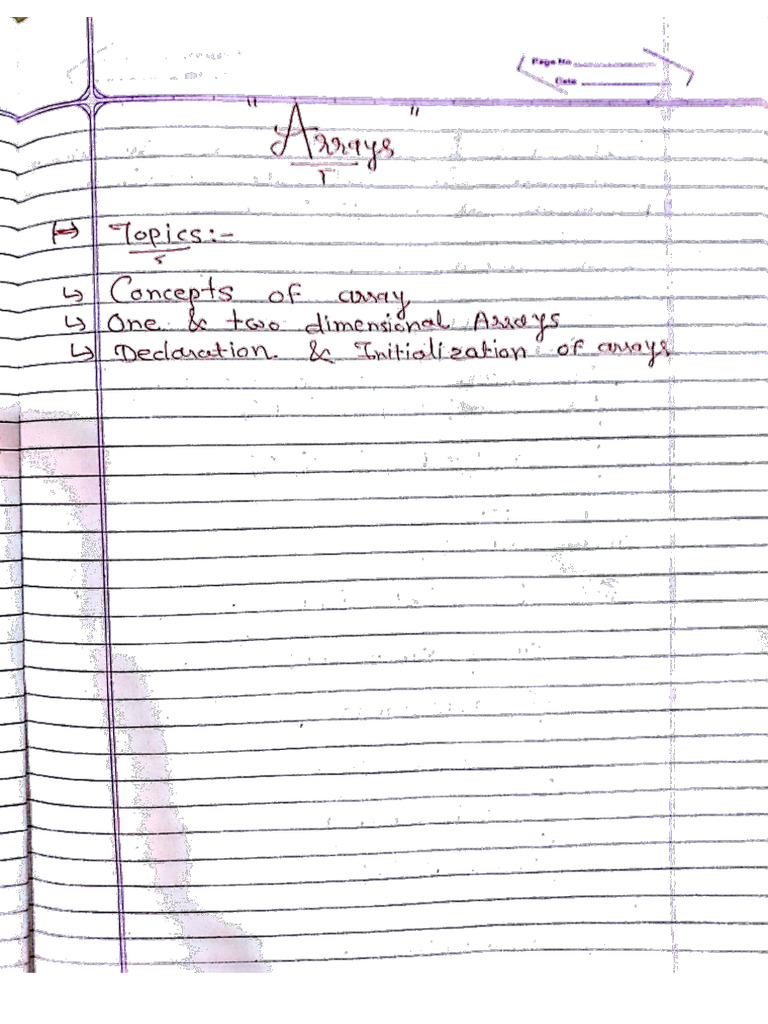 Page No
Date
"Arrays"
Topics:-
↳ Concepts of array
↳ One & two dimensional Arrays
↳ Declaration & Initialization of arrays